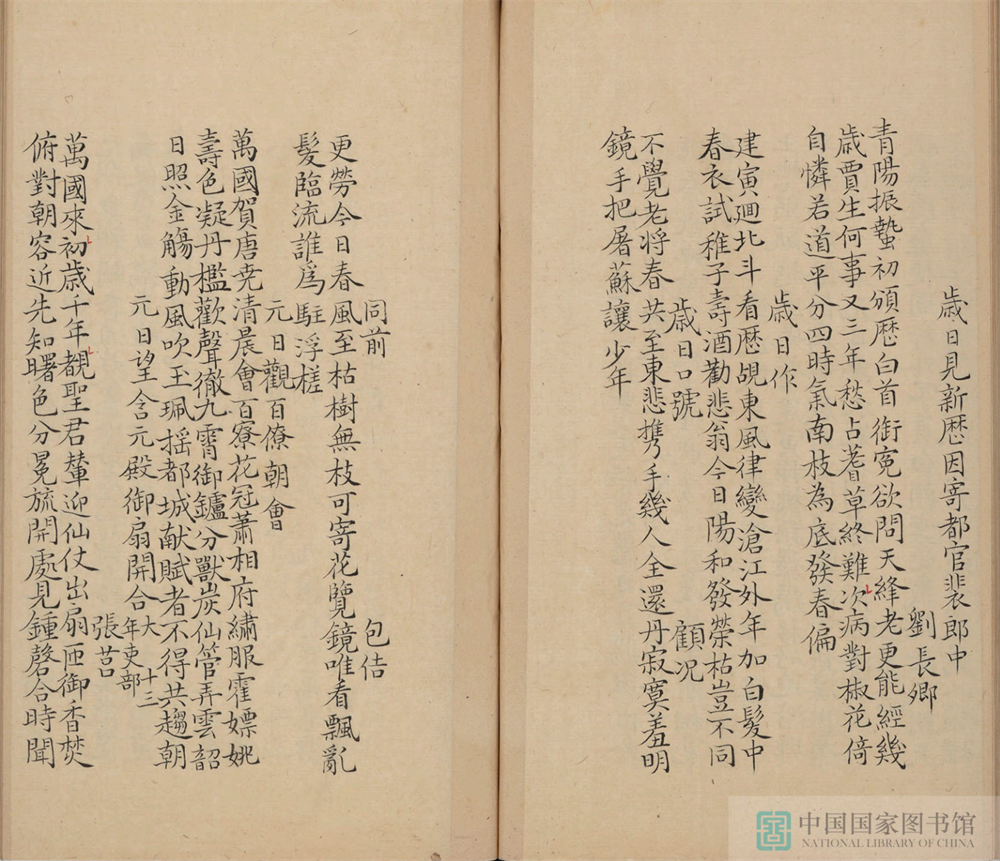 歲日見新歷因寄都官裴郎中
劉長卿
青陽振蟄初頒歷白首銜寃欲問天絳老更能經幾
歲賈生何事又三年愁占蓍草終難次病對椒花倚
自憐若道平分四時氣南枝為底發春偏
歲日作
建寅廻北斗看歷覘東風律變滄江外年加白髮中
春衣試稚子壽酒勸悲翁今日陽和發榮枯豈不同
歲日口號 顧况
不覺老將春共至東悲携手幾人全還丹寂寞羞明
鏡手把屠蘇讓少年
同前 包佶
更勞今日春風至枯樹無枝可寄花覽鏡唯看飄亂
髮臨流誰爲駐浮槎
元日觀百僚朝會
萬國賀唐尭清晨會百寮花冠蕭相府繡服霍嫖姚
壽色疑丹檻歡聲徹九霄御鑪分獸炭仙管弄雲韶
日照金觴動風吹玉珮揺都城献賦者不得共趨朝
元日望含元殿御扇開合 大 十三
年吏部
張莒
萬國來初歲千年覩聖君輦迎仙仗出扇匝御香焚
俯對朝容近先知曙色分冕旒開處見鍾磬合時聞
中国国家图书馆
NATIONAL LIBRARY OF CHINA